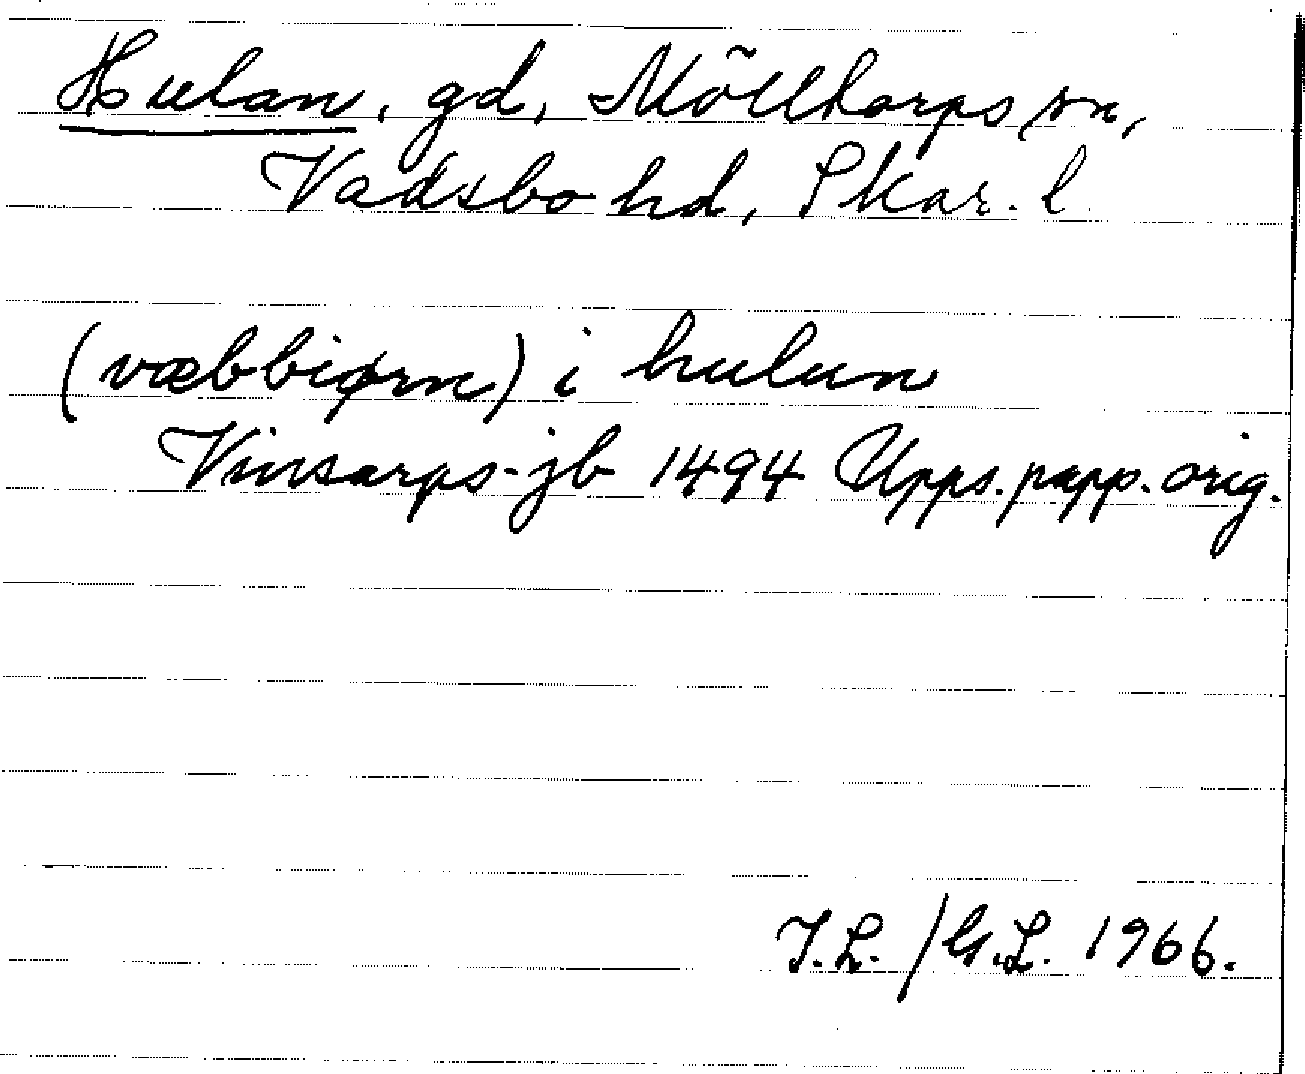 Hulan, gd, Mölltorps sn,
Vadsbo hd, Skar. l.
(væbbiørn) i hulun
Vinsarps-jb 1494 Upps. papp. orig.
I.L./G.L. 1966.